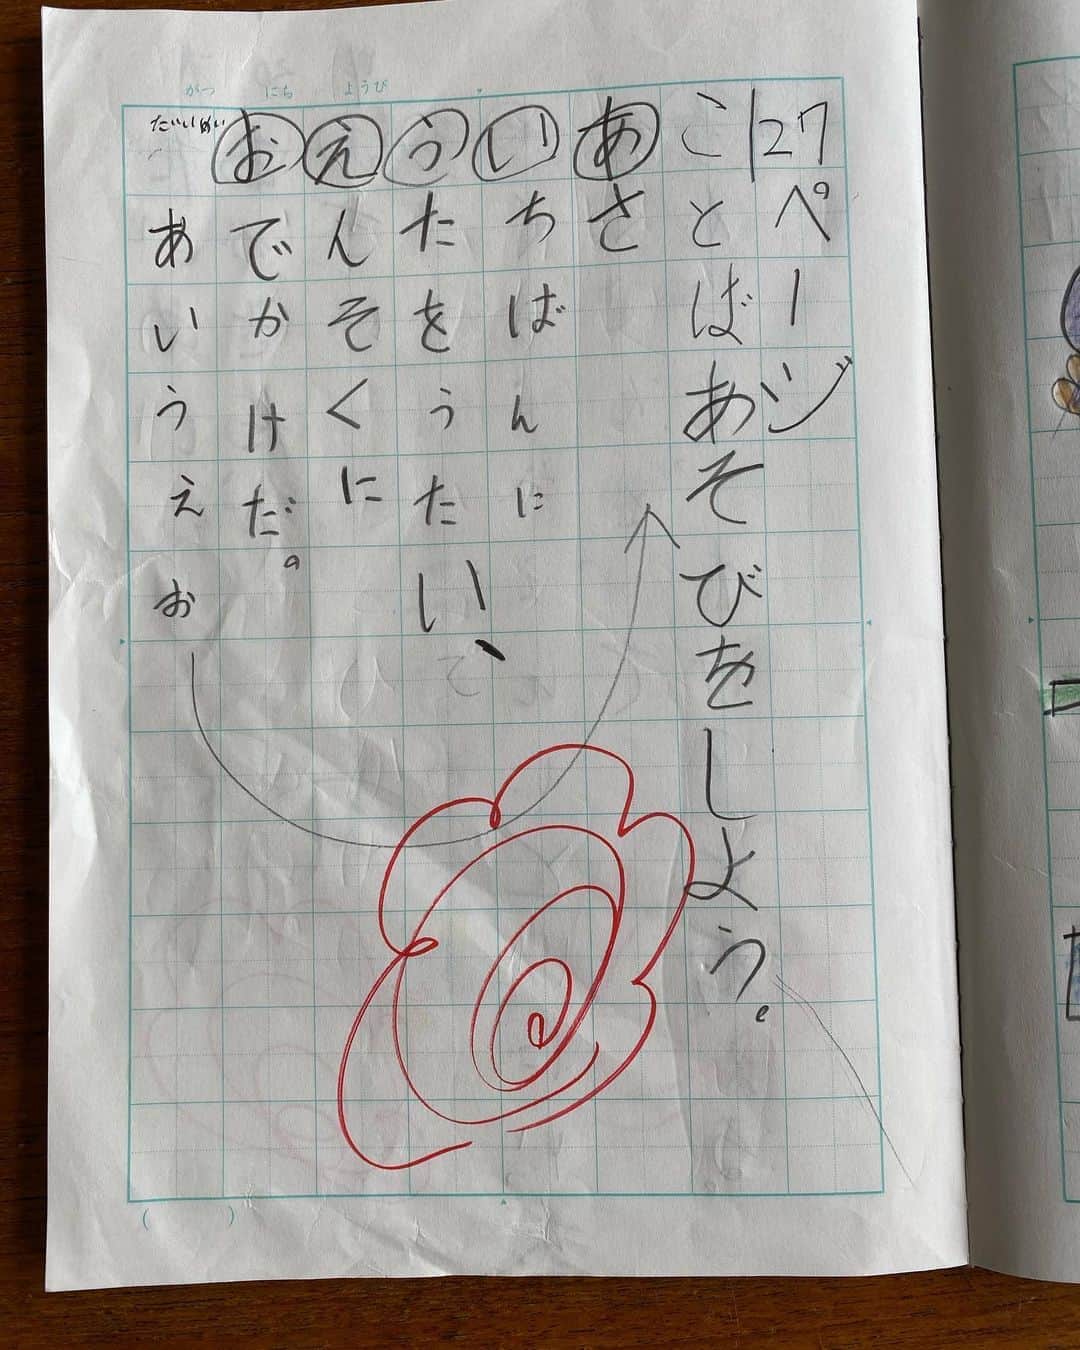 がつ にち ようび
127ページ
ことばあそびをしよう。
あさ
いちばんに
うたをうたい、
えんそくに
おでかけだ。
だいめい
あいうえお
( )